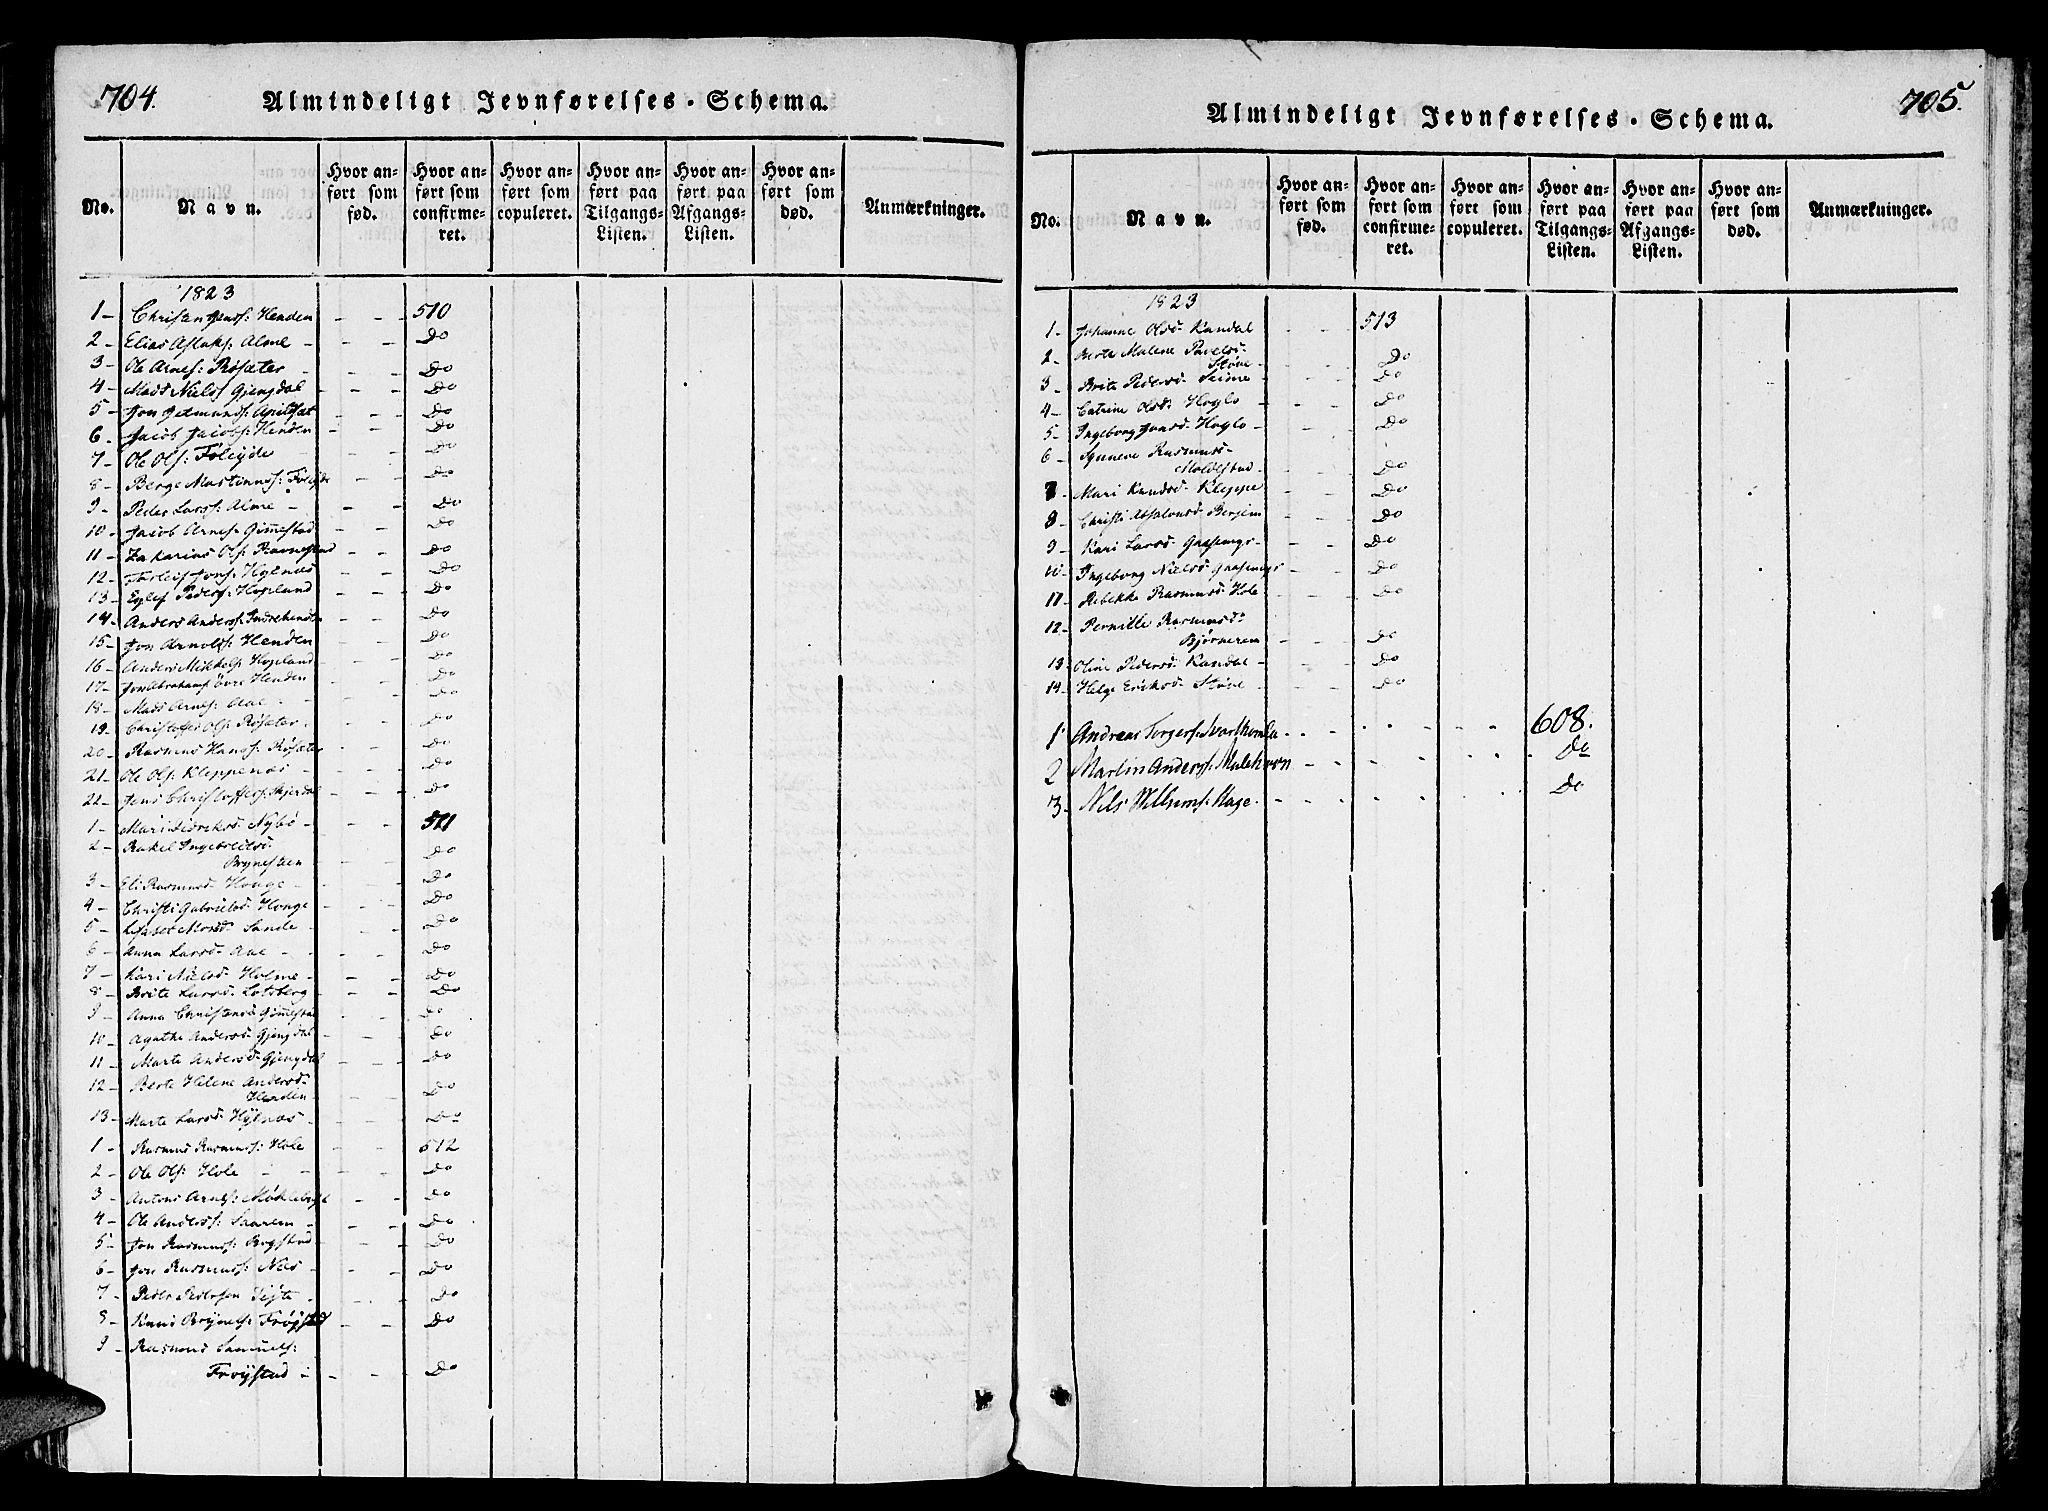 704.
Almindeligt Jevnførelses-Schema.
No.
Navn.
Hvor an-
ført som
fød.
Hvor an-
ført som
confirme-
ret.
Hvor an-
ført som
copuleret.
Hvor an-
ført paa
Tilgangs-
Listen.
Hvor an-
ført paa
Afgangs-
Listen.
Hvor an-
ført som
død.
Anmærkninger.
1823
1- Christen Jens: Henden - - 510
2 Elias Aslaks: Alme - - - Do
3- Ole Arnes: Røsæter - - Do
4- Mads Niels: Gjengdal - - Do
5- Jon Getmunds: Apildsæt - - Do
6- Jacob Jacobs: Henden - - Do
7- Ole Ols: Føleyde - - Do
8- Berge Mastinus: Føleyde - - Do
9- Peder Lars: Alme - - - Do
10- Jacob Arnes: Gimmestad - - Do
11- Zakarias Ols: Ravnestad - - Do
12- Jons: Hylnæs - - Do
13- Peders: Hopland - - Do
14- Anders Anders: Indrehenden - - Do
15- Jon Arnolds: Henden - - Do
16- Anders Mikkels: Hopland - - Do
17- Jon Abrahams: Øvre Henden - - Do
18- Mads Arnes: Aae - - Do
19- Christoffer Ols: Røsæter - - Do
20- Rasmus Hans: Røsæter - - Do
21- Ole Ols: Kleppenæs - - Do
22- Jens Christoffers: Skjerdal - - Do
1- Mari Didriksd. Nybø - - - 511
2- Rakel Ingebretsd.
Brynestæen - - Do
3- Eli Rasmusd. Houge - - - Do
4- Christi Gabrielsd. Houge - - Do
5- Monsd. Sande - - Do
6- Anna Larsd. Aae - - - Do
7- Kari Nielsd. Holme - - - Do
8- Brite Larsd. Lotsberg - - Do
9- Anna Christensd. Gimmestad - - Do
10- Agathe Andersd. Gjengdal - - Do
11- Marte Andersd. Gjengdal - - Do
12- Berte Helene Andersd.
Henden - - - Do
13- Marte Larsd. Hylnæs - - - Do
1- Rasmus Rasmus: Hole - - 512
2- Ole Ols: Hole - - - Do
3- Antoni Arnes: Møklebust - - Do
4- Ole Anders: Saarem - - - Do
5- Jon Rasmus: Rygstad - - Do
6- Jon Rasmus: Nes - - - Do
7- Peder Pedersen Tejte - - - Do
8- Knud Brynels: Frøystad - - Do
9 Rasmus Samuels:
Frøystad - - - Do
705.
Almindeligt Jevnførelses-Schema.
No.
Navn.
Hvor an-
ført som
fød.
Hvor an-
ført som
confirme-
ret.
Hvor an-
ført som
copuleret.
Hvor an-
ført paa
Tilgangs-
Listen.
Hvor an-
ført paa
Afgangs-
Listen.
Hvor an-
ført som
død.
Anmærkninger.
1823
1- Johanne Olsd. Kandal - - 513
2- Berte Malene Pavelsd.
Støve - - - Do
3- Brite Pedersd. Seime - - - Do
4- Catrine Olsd. Hoglo - - - Do
5- Ingeborg Jonsd. Hoglo - - - Do
6- Synneve Rasmus-
Moldestad - - - Do
7- Mari Knudsd. Kleppe - - Do
8- Christi Absalonsd. Bergem - - Do
9- Kari Larsd. Gaasemyr - - - Do
10- Ingeborg Nielsd. Gaasemyr - - Do
11- Rebekke Rasmusd. Hole - - Do
12- Pernille Rasmusd.
Bjørnerem - - Do
13- Oline Pedersd. Kandal - - - Do
14- Helge Eriksd. Støve - - - Do
1 Andreas Torgers: Svarthomla - - - - - 608.
2 Martin Anders: Mulehavn - - - - - Do
3- Nils Willums: Hage - - - - - Do